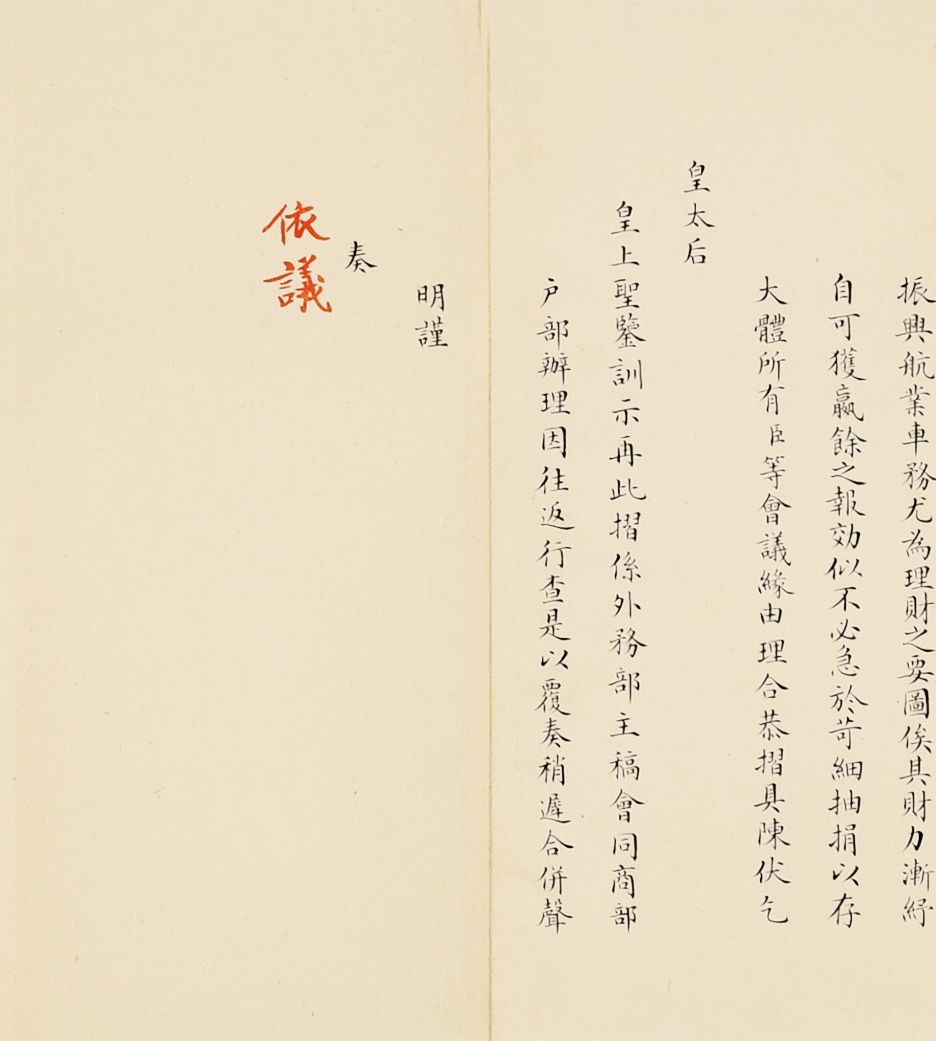 振興航業車務尤為理財之要圖俟其財力漸紓
自可獲贏餘之報効似不必急於苛細抽捐以存
大體所有臣等會議緣由理合恭摺具陳伏乞
皇太后
皇上聖鑒訓示再此摺係外務部主稿會同商部
戶部辦理因往返行查是以覆奏稍遲合併聲
明謹
奏
依議